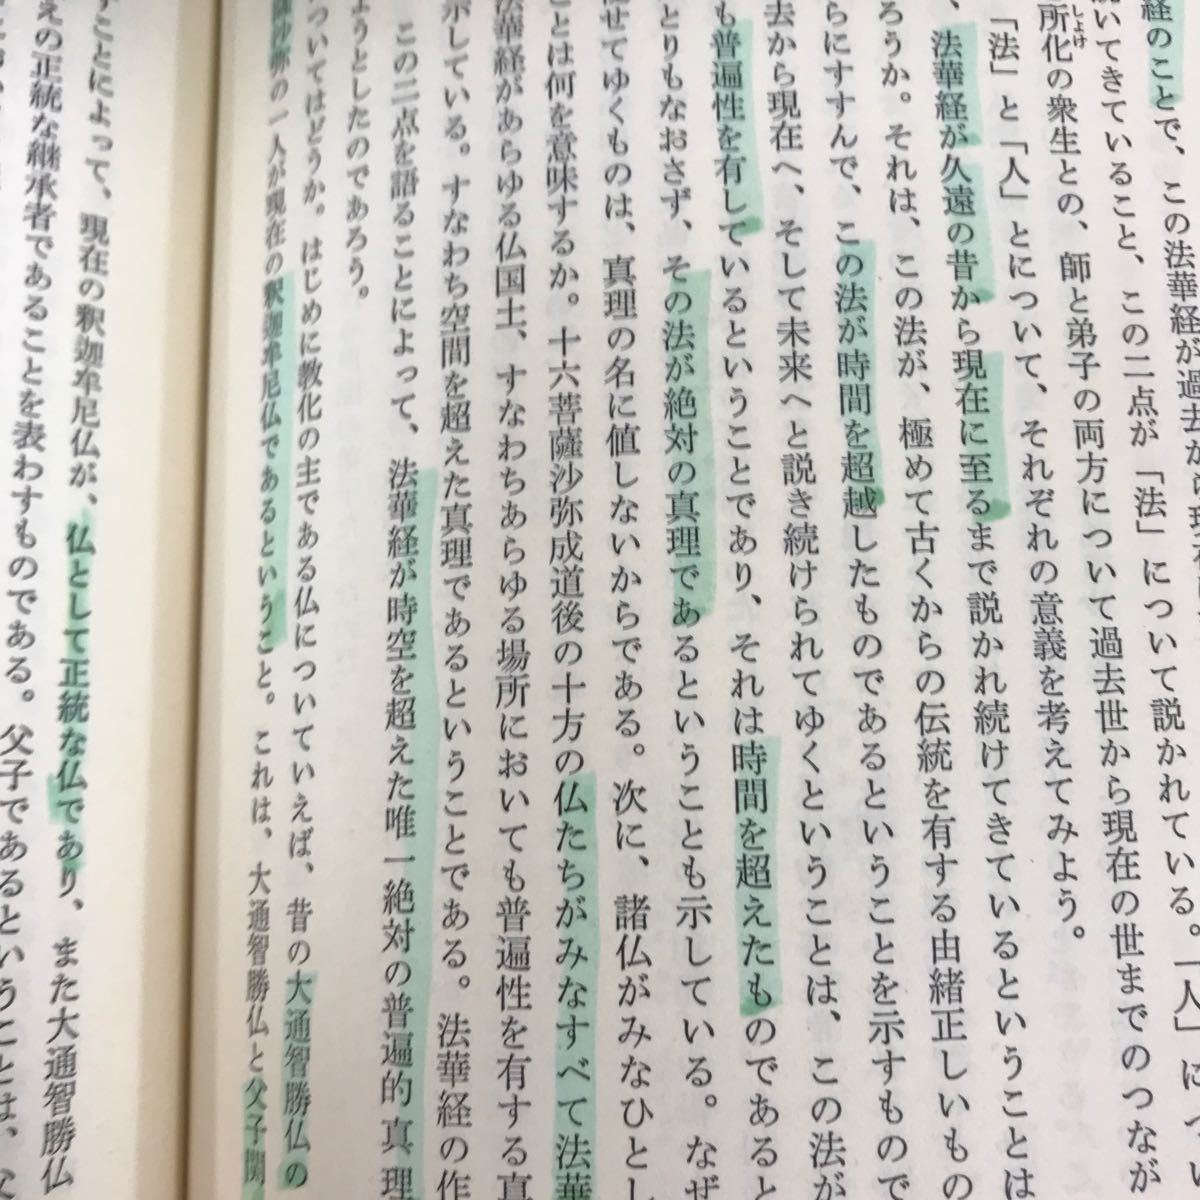 経のことで、この法華経が過去から現在
続いてきていること、この二点が「法」について説かれている。「人」につ
所化の衆生との、師と弟子の両方について過去世から現在の世までのつなが
しょけ
「法」と「人」とについて、それぞれの意義を考えてみよう。
、法華経が久遠の昔から現在に至るまで説かれ続けてきているということは
ろうか。それは、この法が、極めて古くからの伝統を有する由緒正しいもの
らにすすんで、この法が時間を超越したものであるということを示すもので
去から現在へ、そして未来へと説き続けられてゆくということは、この法が
も普遍性を有しているということであり、それは時間を超えたものであると
とりもなおさず、その法が絶対の真理であるということも示している。なぜ
せてゆくものは、真理の名に値しないからである。次に、諸仏がみなひとし
ことは何を意味するか。十六菩薩沙弥成道後の十方の仏たちがみなすべて法華
法華経があらゆる仏国土、すなわちあらゆる場所においても普遍性を有する真
示している。すなわち空間を超えた真理であるということである。法華経の作
この二点を語ることによって、法華経が時空を超えた唯一絶対の普遍的真理
ようとしたのであろう。
ついてはどうか。はじめに教化の主である仏についていえば、昔の大通智勝仏の
沙弥の一人が現在の釈迦牟尼仏であるということ。これは、大通智勝仏と父子関
すことによって、現在の釈迦牟尼仏が、仏として正統な仏であり、また大通智勝仏
えの正統な継承者であることを表わすものである。父子であるということは、父